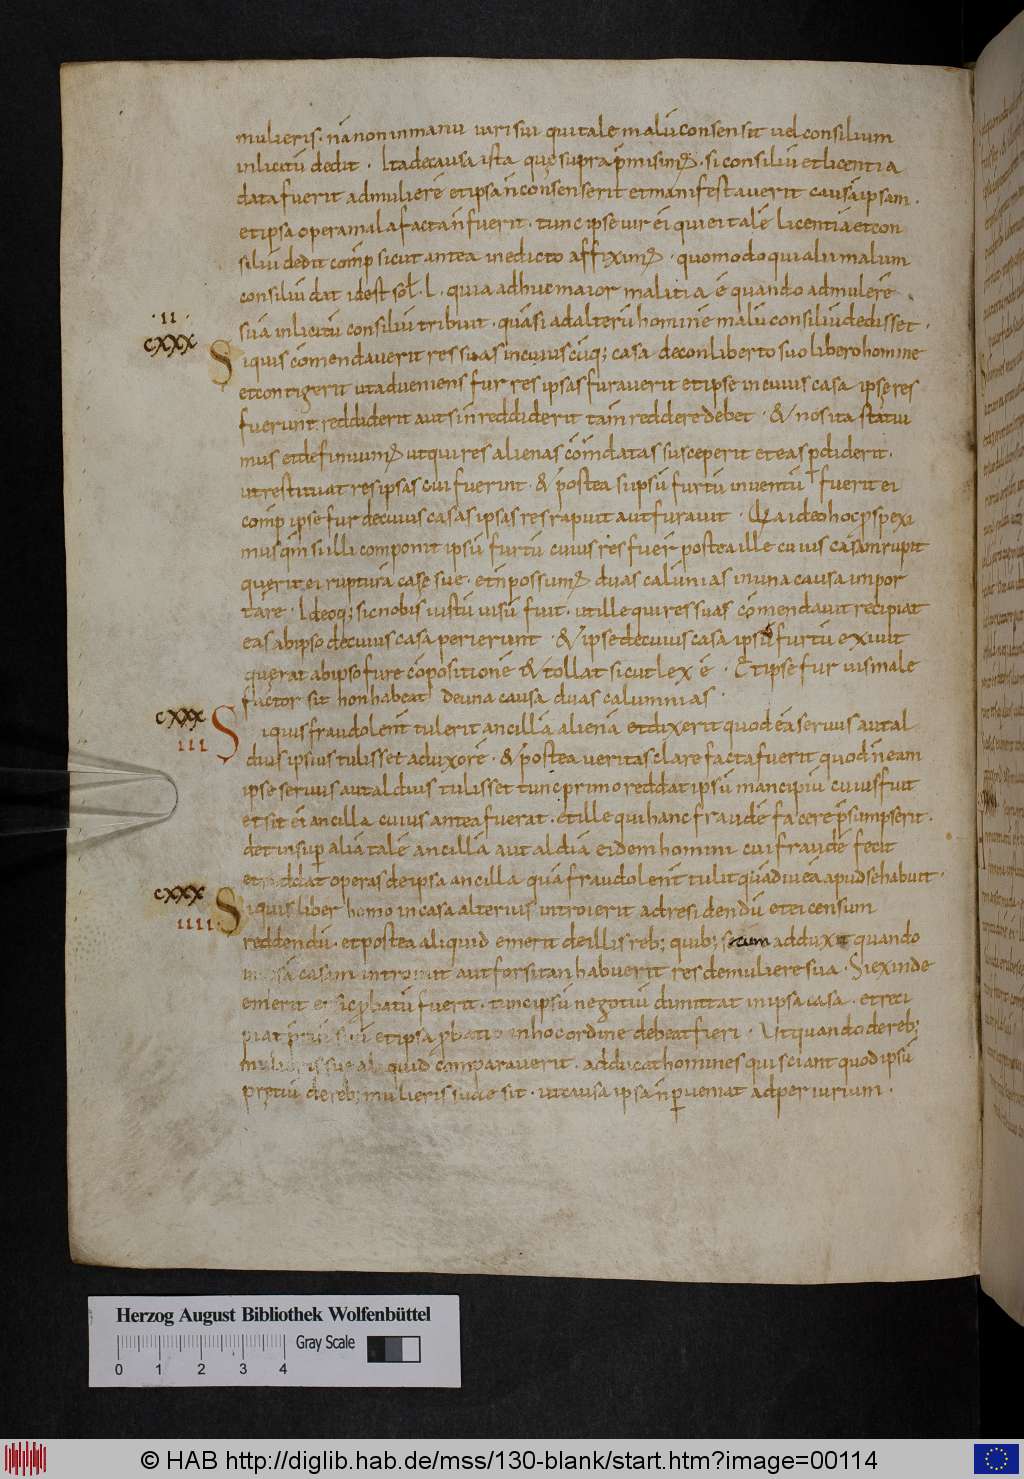 mulieris · nā non in manu uarisui qui tale malū consensit uel consilium
inlicitū dedit · Ita de causa ista que supra p̄misimus · si consiliū et licentia
data fuerit ad mulierē et ipsa n̄ cōsenserit et manifestauerit causā ipsam ·
et ipsa opera mala facta n̄ fuerit · tunc ipse uir ei qui ei talē licentiā et con
siliū dedit comp̄ sicut antea in edicto affiximus · quomodo qui alii malum
consiliū dat id est sol̄ · l · quia adhuc maior malitia ē quando ad mulerē
suā inlicitū consiliū tribuit · quāsi ad alterū hominē malū consiliū dedisset ·
· II ·
CXXX
Siquis cōmendauerit res suas in cuiuscūq; casa de conliberto suo libero homine
et contigerit ut adueniens fur res ipsas furauerit et ipse in cuius casa ipse res
fuerunt reddiderit aut si n̄ reddiderit tam̄ reddere debet · & nos ita statui
mus et definiuimus ut qui res alienas cōmdatas susceperit et eas perdiderit ·
ut restituat res ipsas cui fuerint · & postea si ipsū furtū inuentū fuerit ei
comp̄ ipse fur de cuius casas ipsas res rapuit aut furauit · Quia ideo hoc p̄spexi
mus qm̄ si illi componit ipsū furtū cuius res fuer̄ postea ille cuius casam rupit
querit ei rupturā case sue · et n̄ possumus duas calūnias in una causa inpor
tare · Ideoq; sic nobis iustū uisū fuit · ut ille qui res suas cōmendauit recipiat
eas ab ipso de cuius casa perierunt · & ipse de cuius casa ipsū furtū exiuit
querat ab ipso fure cōpositionē & tollat sicut lex ē · Et ipse fur uis male
factor sit non habeat de una causa duas calumnias ·
CXXX
III
Siquis fraudolent̄ tulerit ancillā alienā et duxerit quod eā seruus aut al
dius ipsius tulisset ad uxorē · & postea ueritas clare facta fuerit quod n̄ eam
ipse seruus aut aldius tulisset tunc primo reddat ipsū mancipiū cuius fuit
et sit ei ancilla cuius antea fuerat · et ille qui hanc fraudē facere p̄sumpserit ·
det insup̄ aliā talē ancillā aut aldiā eidem homini cui fraudē fecit
et reddat operas de ipsa ancilla quā fraudolent̄ tulit quādiu eā apud se habuit ·
CXXX
IIII ·
Siquis liber homo in casa alterius introierit ad residendū et ei censum
reddendū · et postea aliquid emerit de illis reb; quib; secum adduxit quando
in ipsā casam introiuit aut forsitan habuerit res de muliere sua · Si exinde
emerit et sic p̄batū fuerit · tunc ipsū negotiū dimittat in ipsa casa · et reci
piat et ipsa p̄batio in hoc ordine debeat fieri · Ut quando de reb;
mulieris sue aliquid cōmparauerit · adducat homines qui sciant quod ipsū
pretiū de reb; mulieris sue sit · ut causa ipsa n̄ perueniat ad periurium ·
Herzog August Bibliothek Wolfenbüttel
Gray Scale
0 1 2 3 4
© HAB http://diglib.hab.de/mss/130-blank/start.htm?image=00114